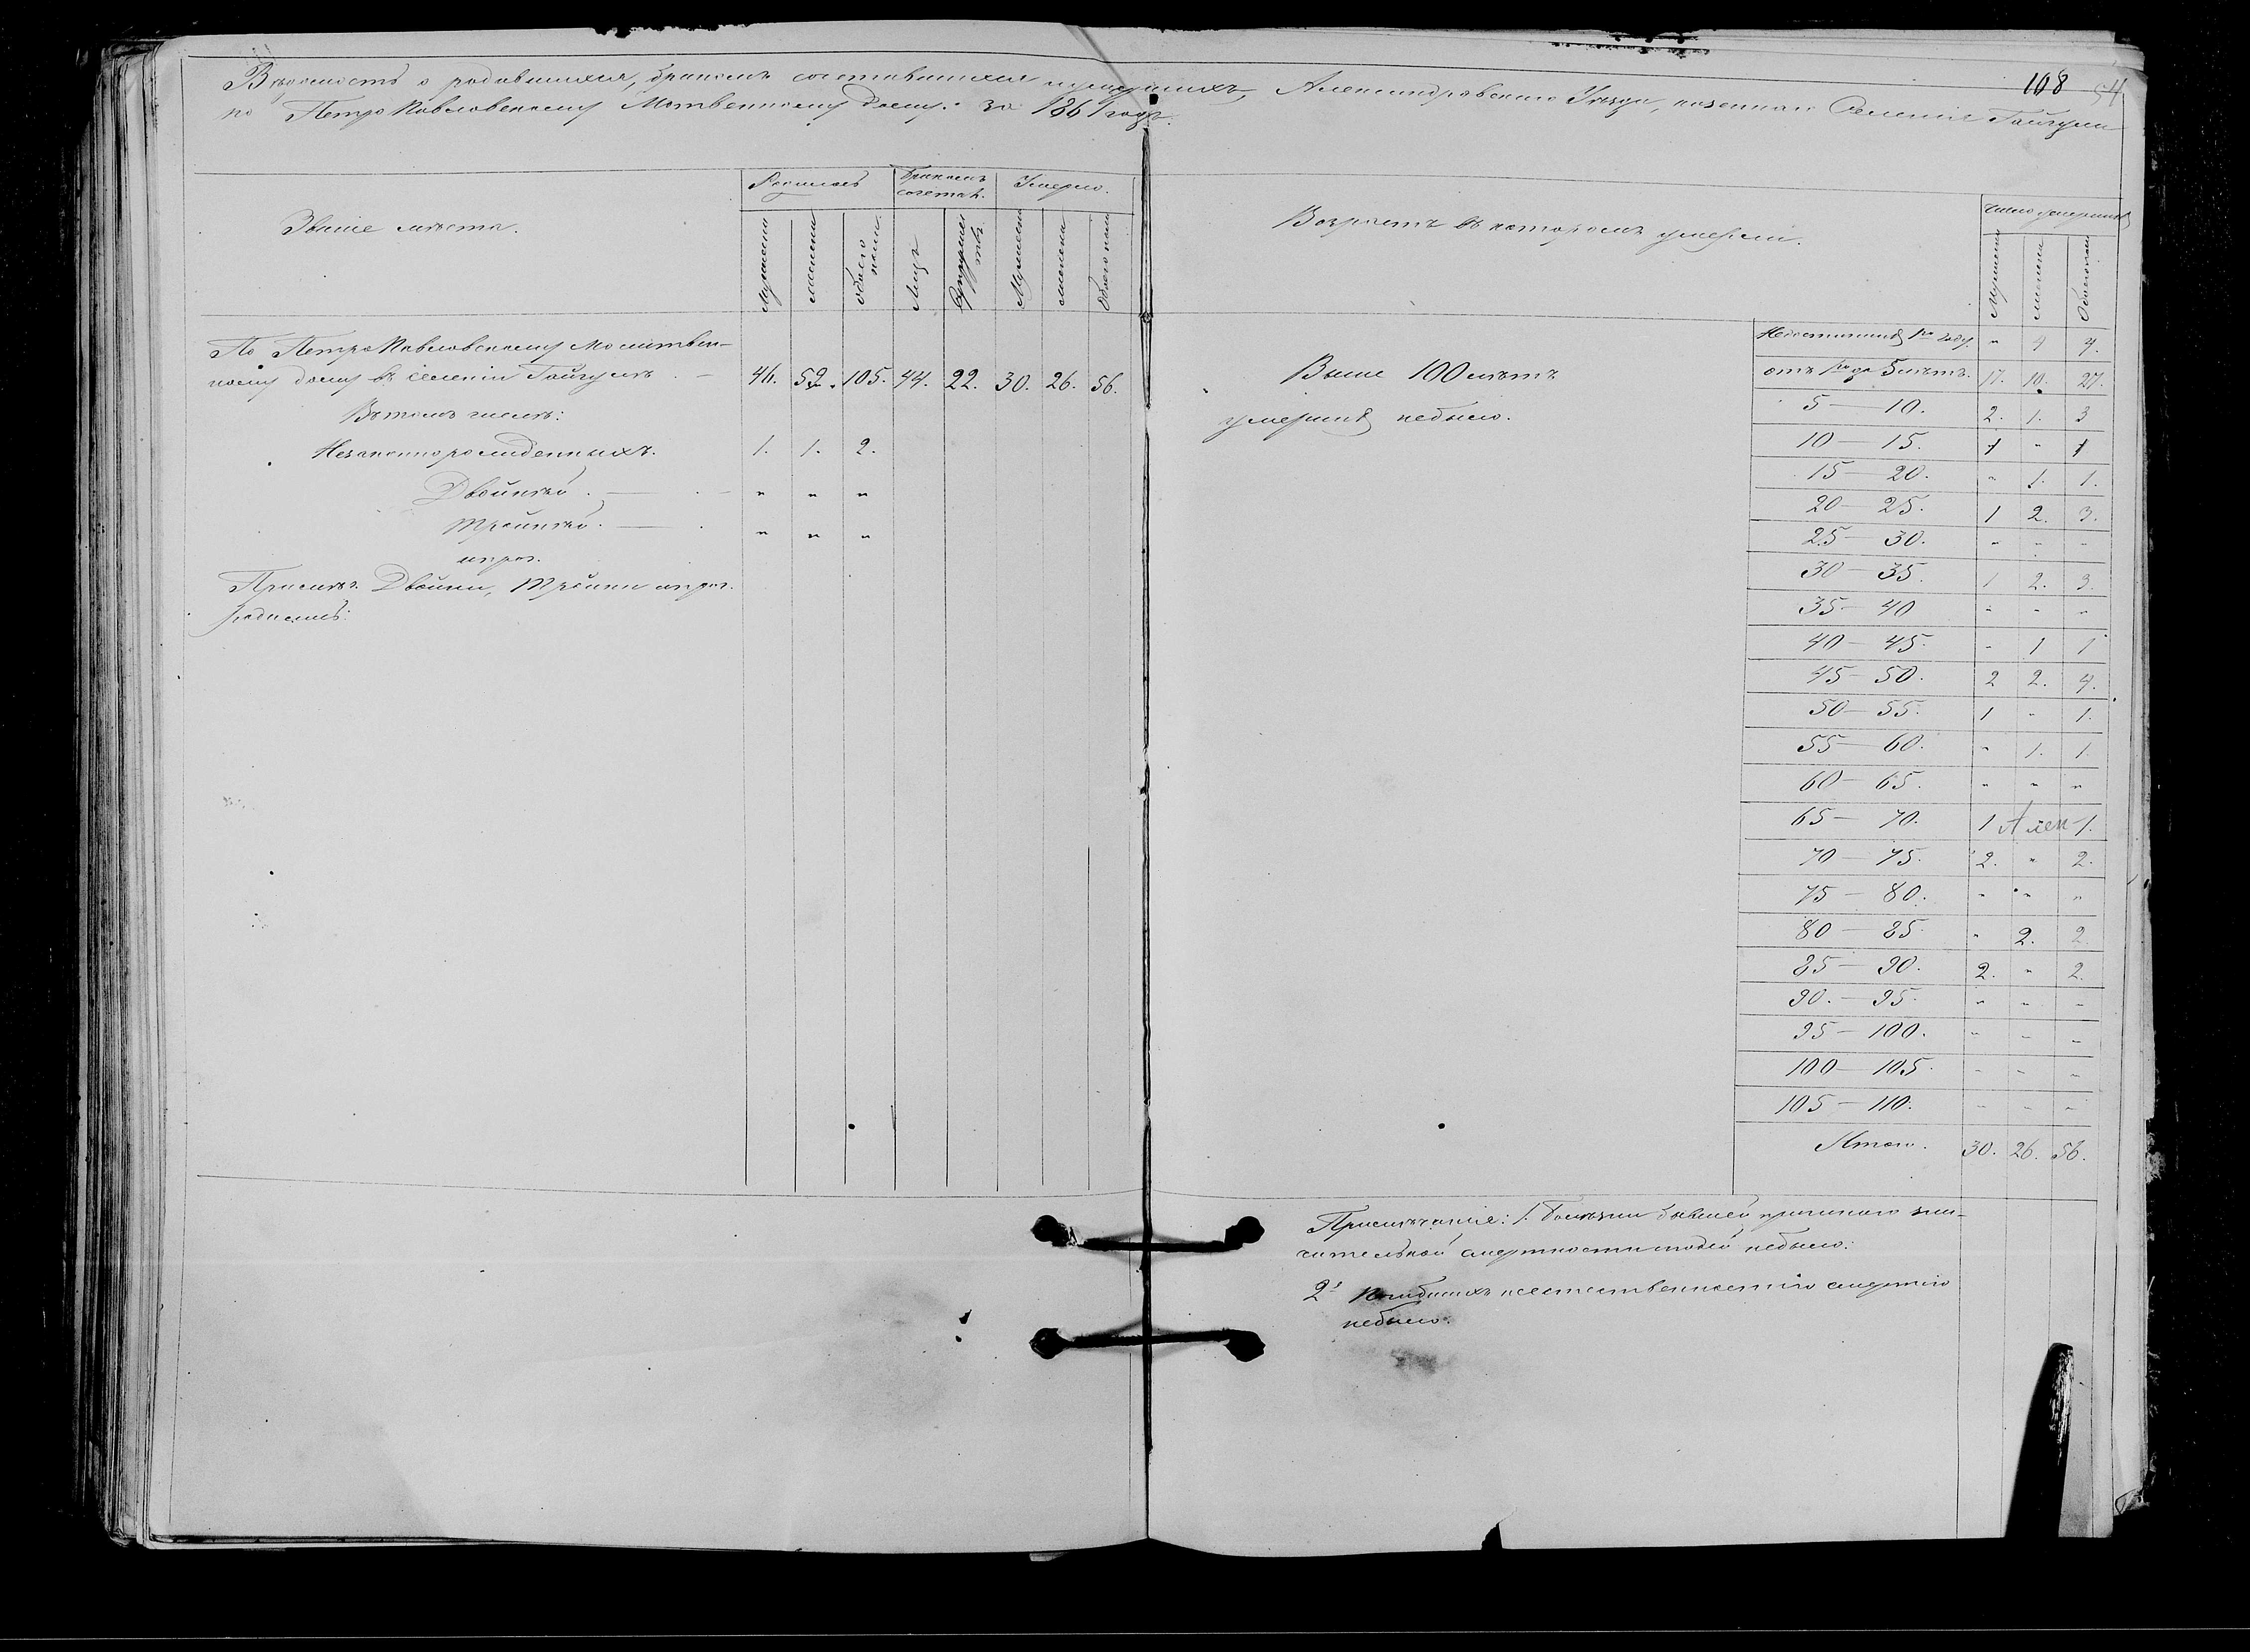 108 54
Вѣдомость о родившихся, бракомъ сочетавшихся и умершихъ, Александровскаго Уѣзда, казеннаго Селенія Гайчулъ
по ПетроПавловскому Молтвенному дому: за 1861 годъ.
Званіе мѣста.
Родилось
Бракомъ сочетал.
Умерло.
Мужеска
женска
обоего пола
Лицъ
Супружествъ
Мужеска
женска
Обоего пола
По ПетроПавловскому Молитвен-
ному дому въ селеніи Гайчулъ . — 46. 59. 105. 44. 22. 30. 26. 56.
Въ томъ числѣ:
Незаконнорожденныхъ. 1. 1. 2.
Двойней . — „ „ „
Тройней . — „ „ „
и проч.
Примѣч. Двойни, Тройни и проч.
родились:
Возрастъ въ которомъ умерли.
Число умершихъ
Мужеска
женска
Обоего пола
Выше 100 лѣтъ
умершихъ небыло.
Недостигшихъ 1го году. „ 4 4.
отъ 1го до 5 лѣтъ. 17. 10. 27.
5 — 10. 2. 1. 3
10 — 15. 1 „ 1
15 — 20. „ 1. 1.
20 — 25. 1 2. 3.
25 — 30. „ „ „
30 — 35. 1 2. 3.
35 — 40 „ „ „
40 — 45. „ 1 1
45 — 50. 2 2. 4.
50 — 55. 1 „ 1.
55 — 60. „ 1. 1.
60 — 65. „ „ „
65 — 70. 1 1.
70 — 75. 2. „ 2.
75 — 80. „ „ „
80 — 85. „ 2. 2.
85 — 90. 2. „ 2.
90. — 95. „ „ „
95 — 100. „ „ „
100 — 105. „ „ „
105 — 110. „ „ „
Итого. 30. 26. 56.
Примѣчаніе: 1. Болѣзни бывшей причиною зна-
чительной смертности людей небыло:
2. Погибшихъ неестественностію смертію
небыло.